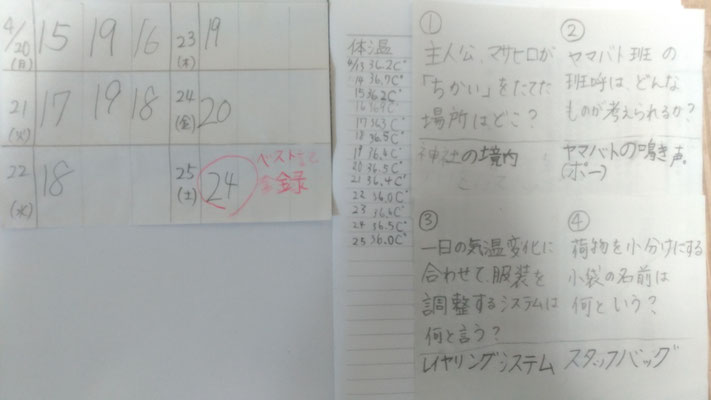 4/20 15 19 16
(月)
21 17 19 18
(火)
22 18
(水)
23 19
(木)
24 20
(金)
25 24
(土)
ベスト
録
体温
36.2C°
14 36.7C°
15 36.2C°
16
17 36.3C°
18 36.5C°
19 36.6C°
20 36.5C°
21 36.4C°
22 36.0C°
23 36.6C°
24 36.5C°
25 36.0C°
①
主人公、マサヒロが
「ちかい」をたてた
場所はどこ？
神社の境内
②
ヤマバト班の
班呼は、どんな
ものが考えられるか？
ヤマバトの鳴き声
(ポー)
③
一日の気温変化に
合わせて、服装を
調整するシステムは
何と言う？
レイヤリングシステム
④
荷物を小分けにする
小袋の名前は
何という？
スタッフバッグ